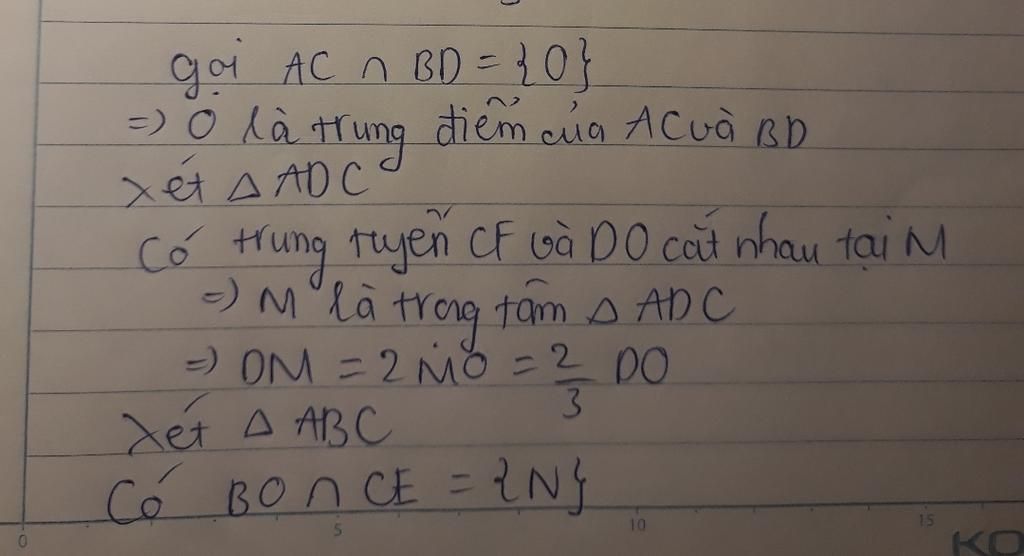 gọi AC ∩ BD = {O}
=> O là trung điểm của AC và BD
Xét △ ADC
Có trung tuyến CF và DO cắt nhau tại M
=> M là trọng tâm △ ADC
=> DM = 2 MO = 2/3 DO
Xét △ ABC
Có BO ∩ CE = {N}
0 5 10 15
KO